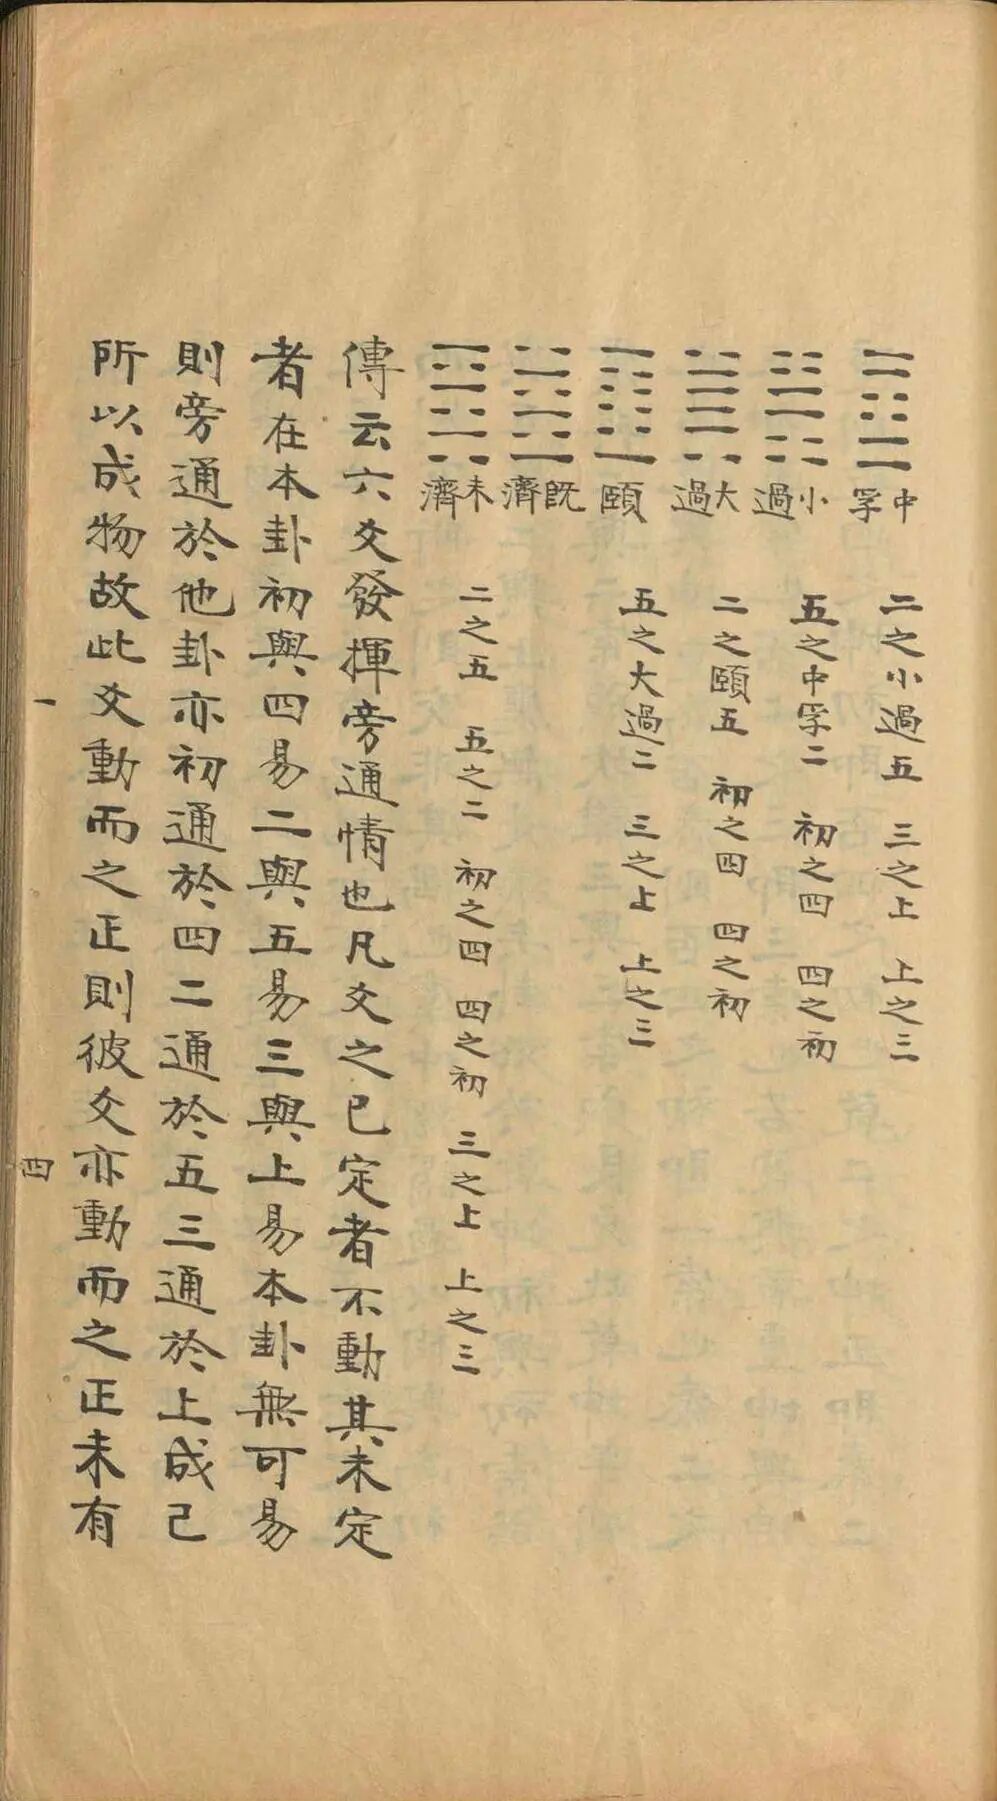 ䷼中孚 二之小過五 三之上 上之三
䷽小過 五之中孚二 初之四 四之初
䷛大過 二之頤五 初之四 四之初
䷚頤 五之大過二 三之上 上之三
䷾既濟
䷿未濟 二之五 五之二 初之四 四之初 三之上 上之三
傳云六爻發揮旁通情也凡爻之已定者不動其未定
者在本卦初與四易二與五易三與上易本卦無可易
則旁通於他卦亦初通於四二通於五三通於上成己
所以成物故此爻動而之正則彼爻亦動而之正未有
一 四